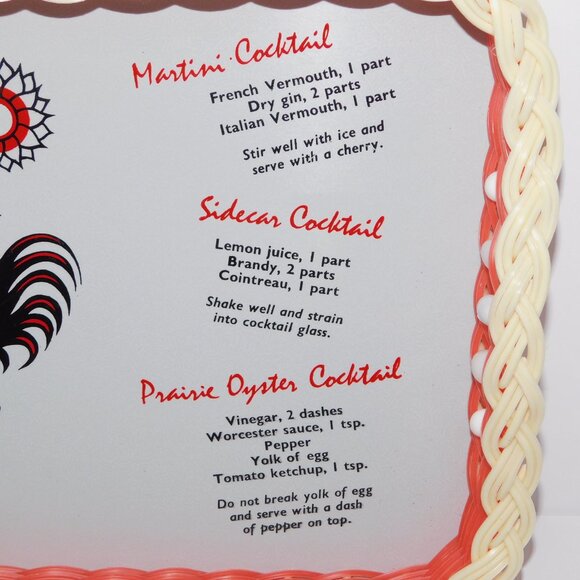 Martini Cocktail
French Vermouth, 1 part
Dry gin, 2 parts
Italian Vermouth, 1 part
Stir well with ice and
serve with a cherry.
Sidecar Cocktail
Lemon juice, 1 part
Brandy, 2 parts
Cointreau, 1 part
Shake well and strain
into cocktail glass.
Prairie Oyster Cocktail
Vinegar, 2 dashes
Worcester sauce, 1 tsp.
Pepper
Yolk of egg
Tomato ketchup, 1 tsp.
Do not break yolk of egg
and serve with a dash
of pepper on top.